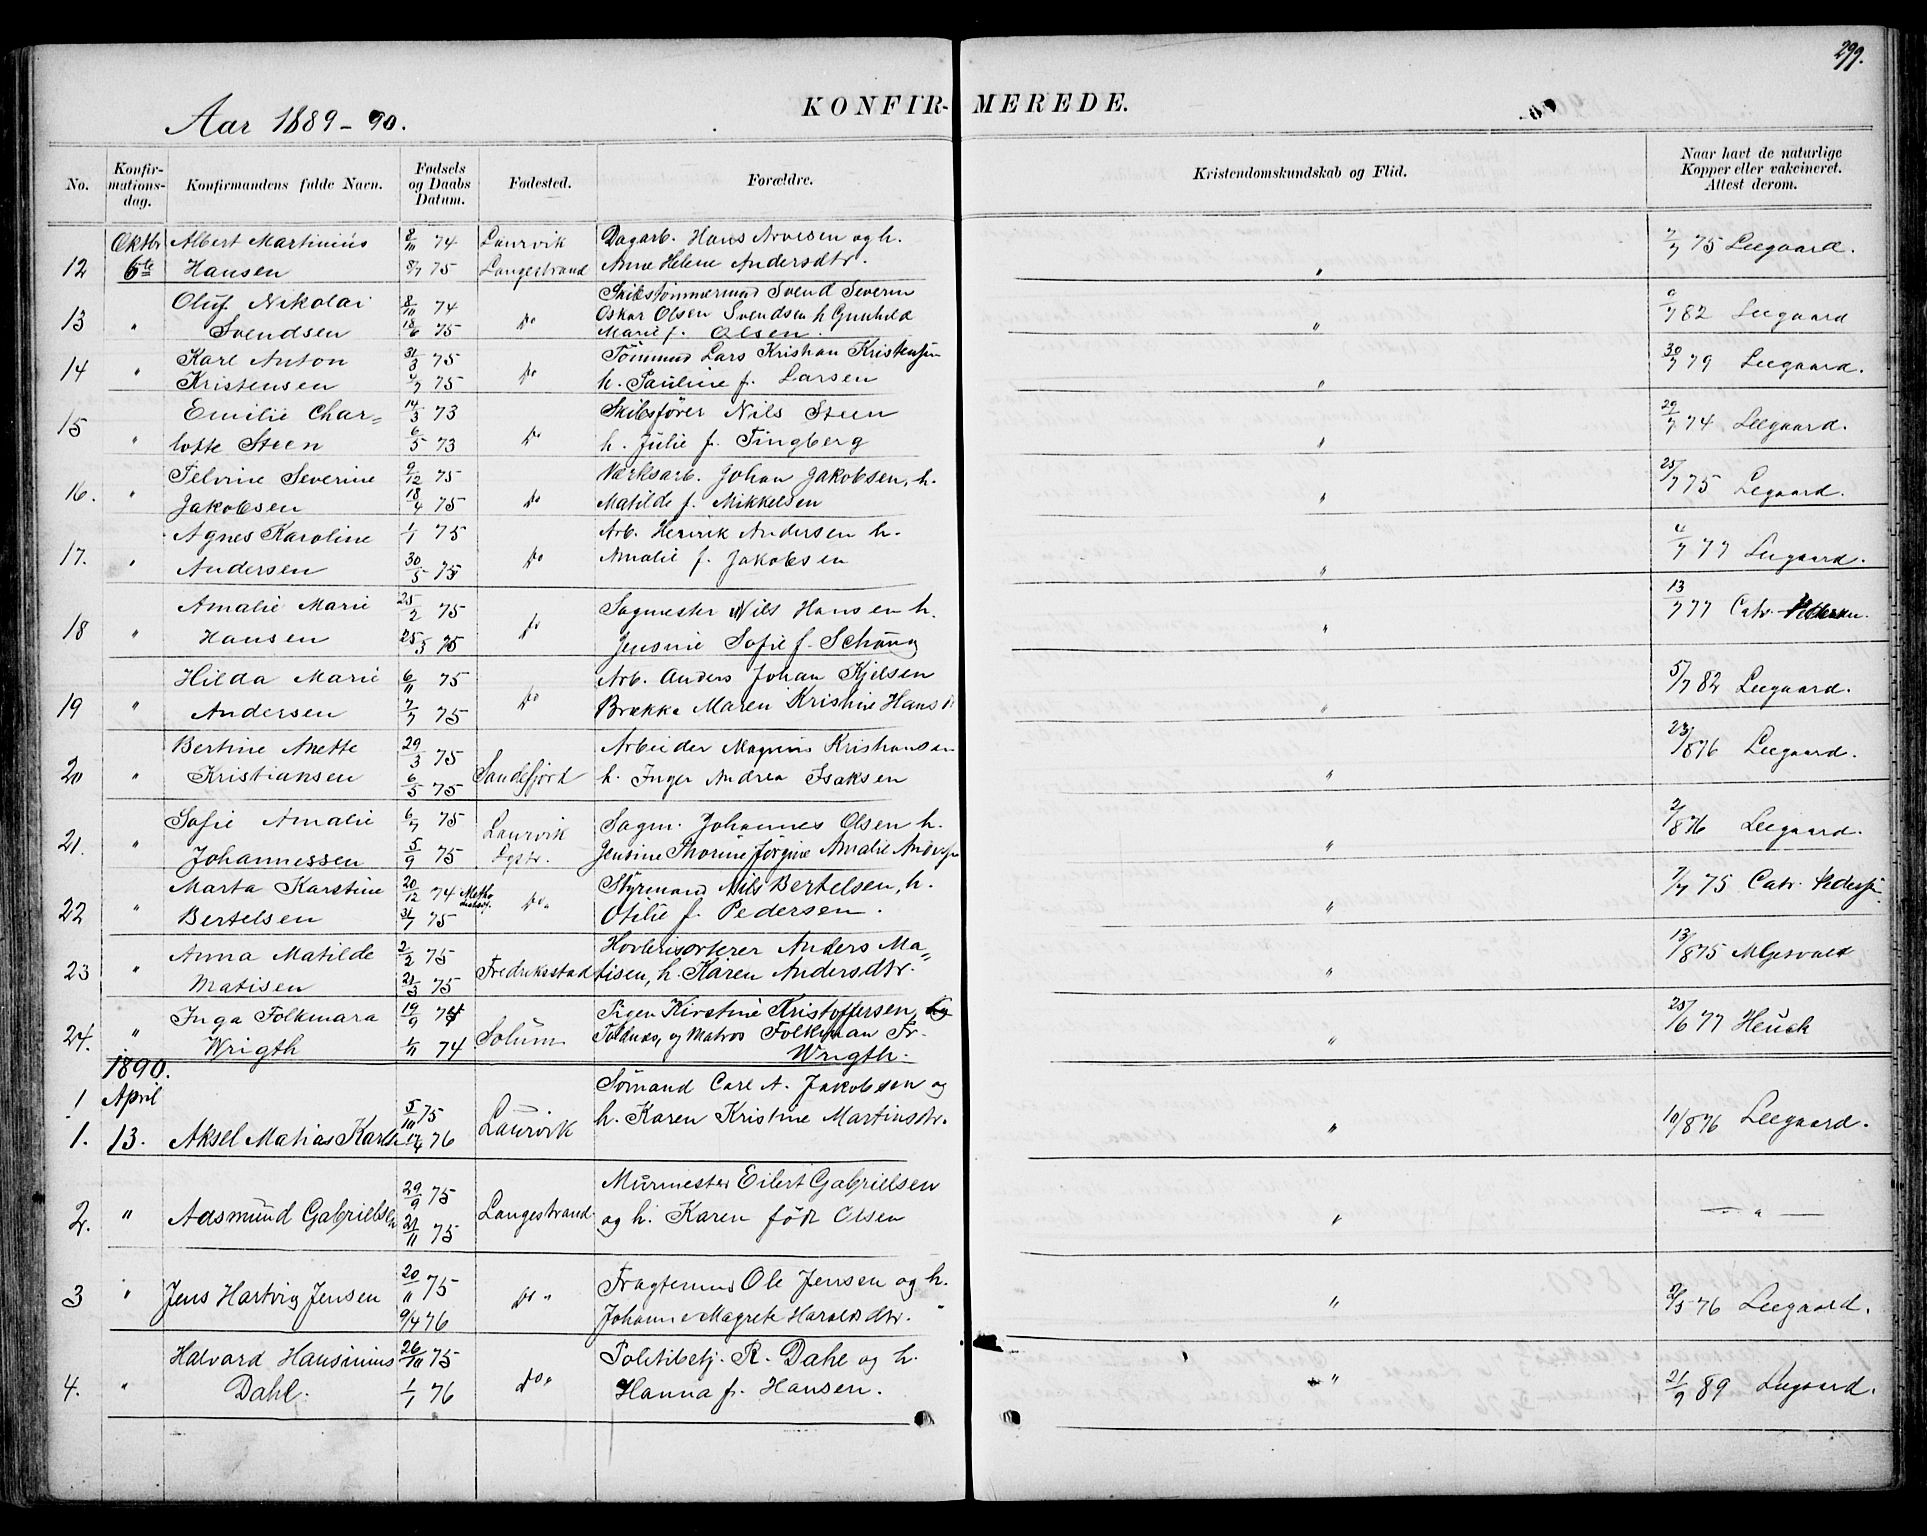 299.
Aar 1889-90.
KONFIR-MEREDE.
No.
Konfir-mations-dag.
Konfirmandens fulde Navn.
Fødsels og Daabs Datum.
Fødested.
Forældre.
Kristendomskundskab og Flid.
Naar havt de naturlige Kopper eller vakcineret. Attest derom.
Oktbr Albert Martinius 8/11 74 Laurvik Dagarb. Hans Arvesen og h.
12 6te Hansen 8/7 75 Langestrand Anne Helene Andersdtr. " 7/7 75 Leegaard.
Oluf Nikolai 8/11 74 Skibstømmermand Svend Severin
13 " Svendsen 18/6 75 do Oskar Olsen Svendsen h Gunhild " 82 Leegaard
Marie f. Olsen.
Karl Anton 31/3 75 Tømmmd Lars Kristian Kristensen
14 " Kristensen 4/7 75 do h. Pauline f. Larsen " 30/7 79 Leegaard.
Emilie Char= 14/3 73 Skibsfører Nils Steen
15 " lotte Steen 6/5 73 do h. Julie f. Tingberg " 29/7 74 Leegaard.
Telvine Severine 9/12 75 Værksarb. Johan Jakobsen, h.
16. " Jakobsen 18/4 75 do Matilde f. Mikkelsen " 25/7 75 Legaard.
Agnes Karoline 1/1 75 Arb. Henrik Andersen h.
17. " Andersen 30/5 75 do Amalie f. Jakobsen " 4/7 77 Leegaard.
Amalie Marie 25/2 75 Sagmester Nils Hansen h.
18 " Hansen 25/3 75 do Jensine Sofie f. Schöning " 13/7 77 Cath. Pettersen.
Hilda Marie 6/11 75 Arb. Anders Johan Kjelsen
19 " Andersen 7/7 75 do Brækka Maren Kristine Hansd " 5/7 82 Leegaard.
Bertine Anette 29/3 75 Arbeider Magnus Kristiansen
20 " Kristiansen 6/5 75 Sandefjord h. Inger Andrea Isaksen " 23/8 76 Leegaard.
Sofie Amalie 6/7 75 Laurvik Sagm. Johannes Olsen h.
21. " Johannessen 5/9 75 Jensine Thorine Jørgine Amalie Anders " 2/8 76 Leegaard.
Marta Karstine 20/12 74 Styrmand Nils Bertelsen, h.
22 " Bertelsen 31/7 75 do. Otilie f. Pedersen. " 7/7 75 Cath. Pedersen
Anna Matilde 2/2 75 Høvlerisorterer Anders Ma=
23 " Matisen 21/3 75 Fredriksstad tisen, h. Karen Andersdtr. " 13/8 75
Inga Folkmara 19/9 74 Pigen Kirstine Kristoffersen,
24. " Wrigth 1/11 74 Solum Toldnæs, og Matros Folkman Fr. " 25/6 77 Heuch
Wrigth.
1890.
1 April Sømand Carl A. Jakobsen og
1. 13. Aksel Matias Karls 5/10 75 17/4 76 Laurvik h. Karen Kristine Martinsdtr. " 10/8 76 Leegaard.
Murmester Eilert Gabrielsen
2. " Aasmund Gabrielsen 29/9 75 21/11 75 Langestrand og h. Karen født Olsen " — " —
Fragtemd Ole Jensen og h.
3 " Jens Hartvig Jensen 20/11 75 9/4 76 do " Johanne Magrete Haraldsdtr. " 2/5 76 Leegaard.
Halvard Hansinius 26/10 75 Politibetj. R. Dahl og h.
4. " Dahl. 1/1 76 do " Hanna f. Hansen. " 21/9 89 Leegaard.